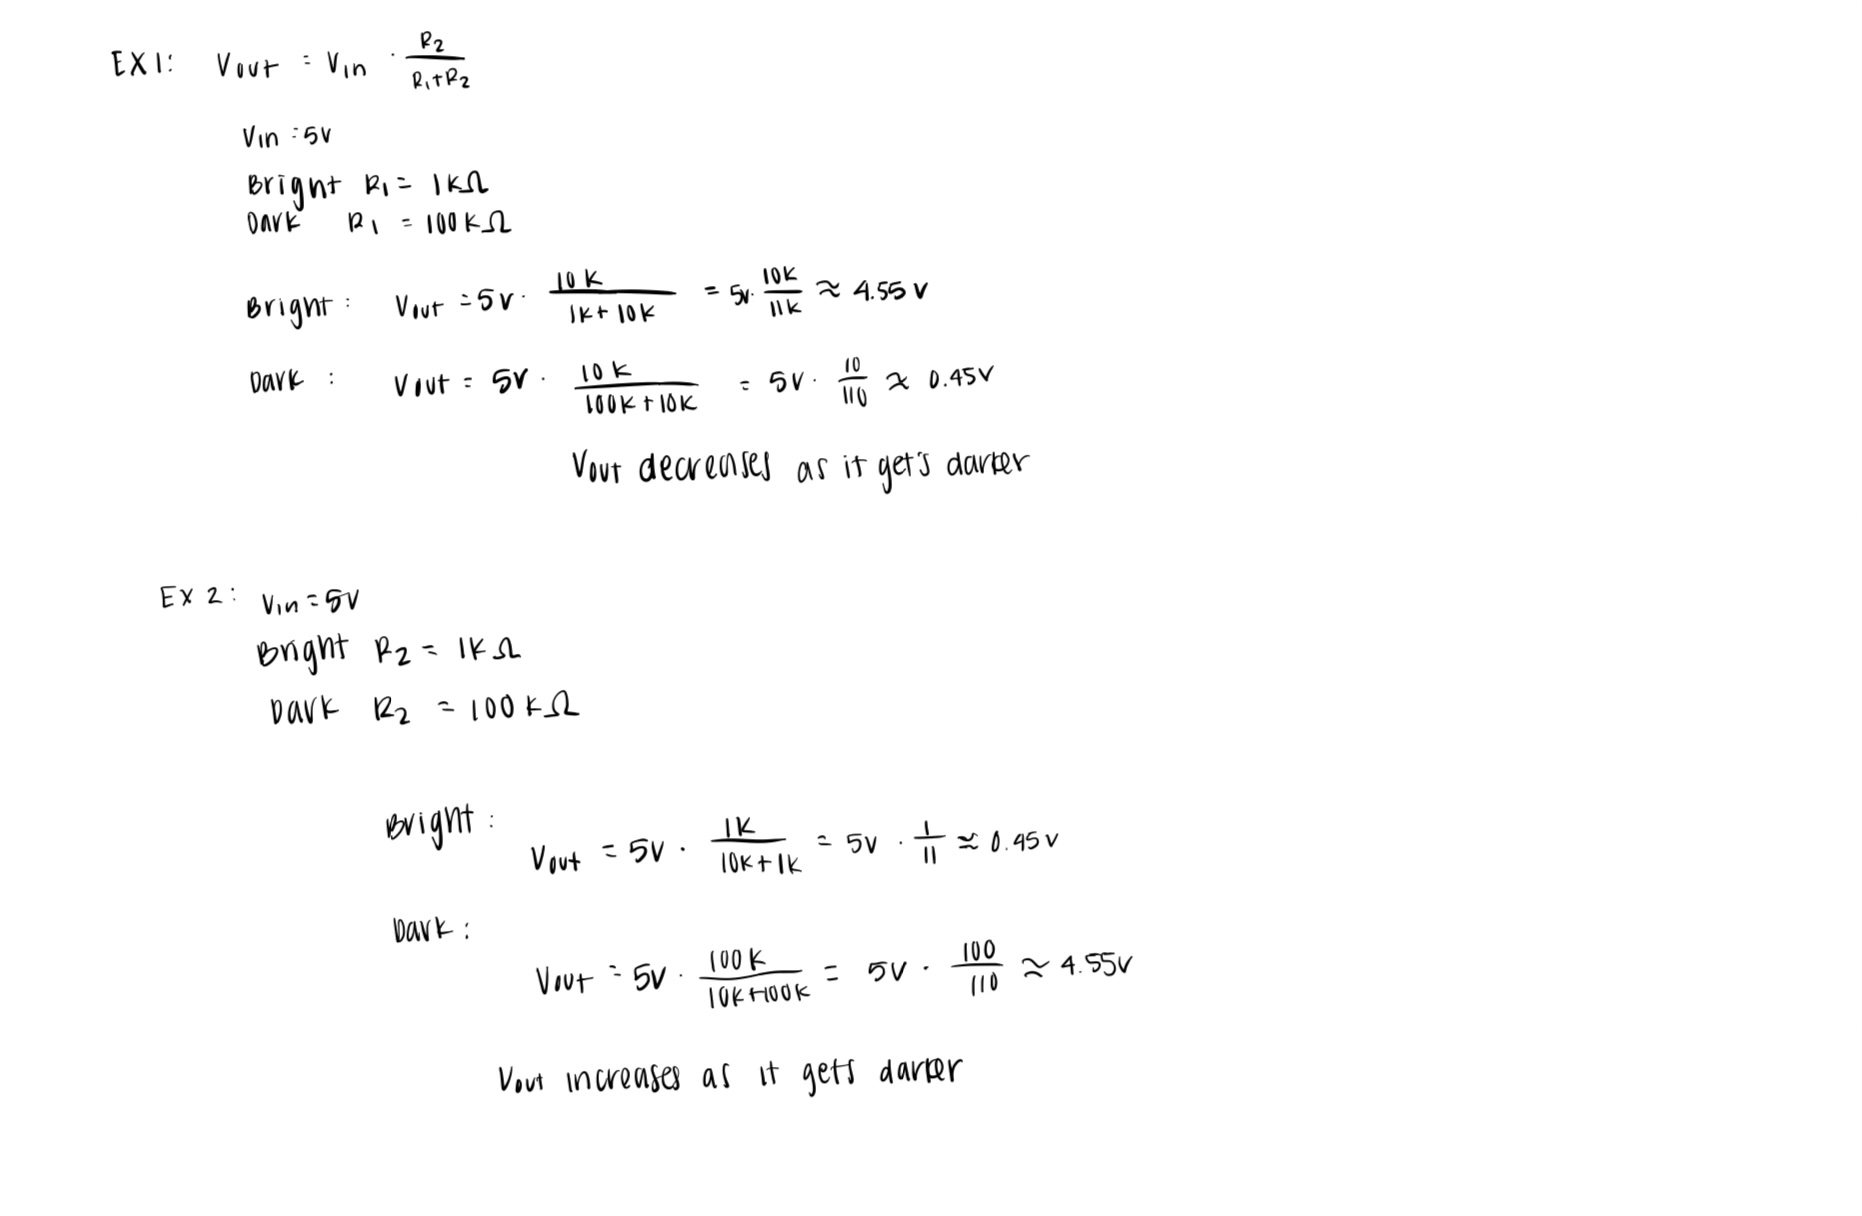 EX1: Vout = Vin · R2/(R1+R2)
Vin = 5V
Bright R1 = 1kΩ
Dark R1 = 100kΩ
Bright: Vout = 5V · 10K/(1K+10K) = 5V · 10K/11K ≈ 4.55 V
Dark: Vout = 5V · 10K/(100K+10K) = 5V · 10/110 ≈ 0.45V
Vout decreases as it get's darker
EX 2: Vin = 5V
Bright R2 = 1KΩ
Dark R2 = 100kΩ
Bright:
Vout = 5V · 1K/(10K+1K) = 5V · 1/11 ≈ 0.45V
Dark:
Vout = 5V · 100K/(10K+100K) = 5V · 100/110 ≈ 4.55V
Vout increases as it gets darker